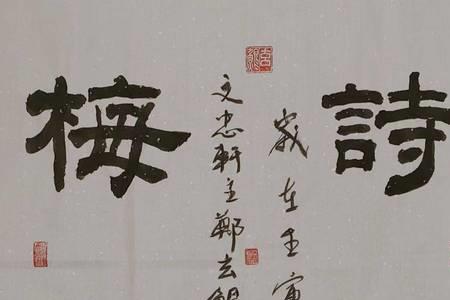 詩
歲在壬寅
文忠軒主鄭
梅